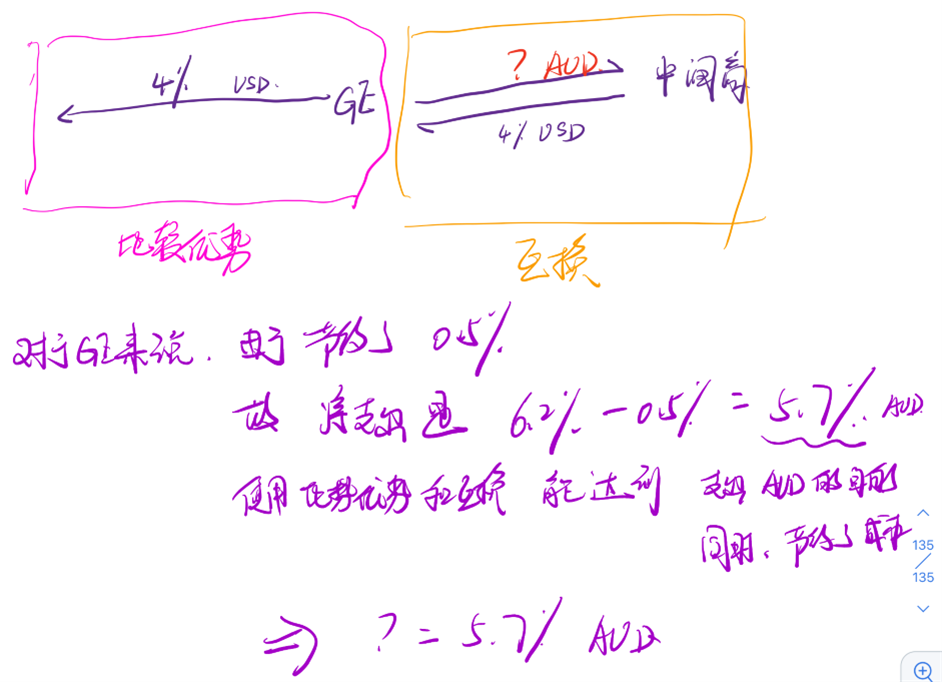 4% USD.
GE
? AUD
中间商
4% USD
比较优势
互换
对于GE来说. 由于 节约了 0.5%
故 净支出是 6.2% - 0.5% = 5.7% AUD
使用比较优势和互换 能达到 支出 AUD的目的
同时、节约了成本
⇒ ? = 5.7% AUD
135
135